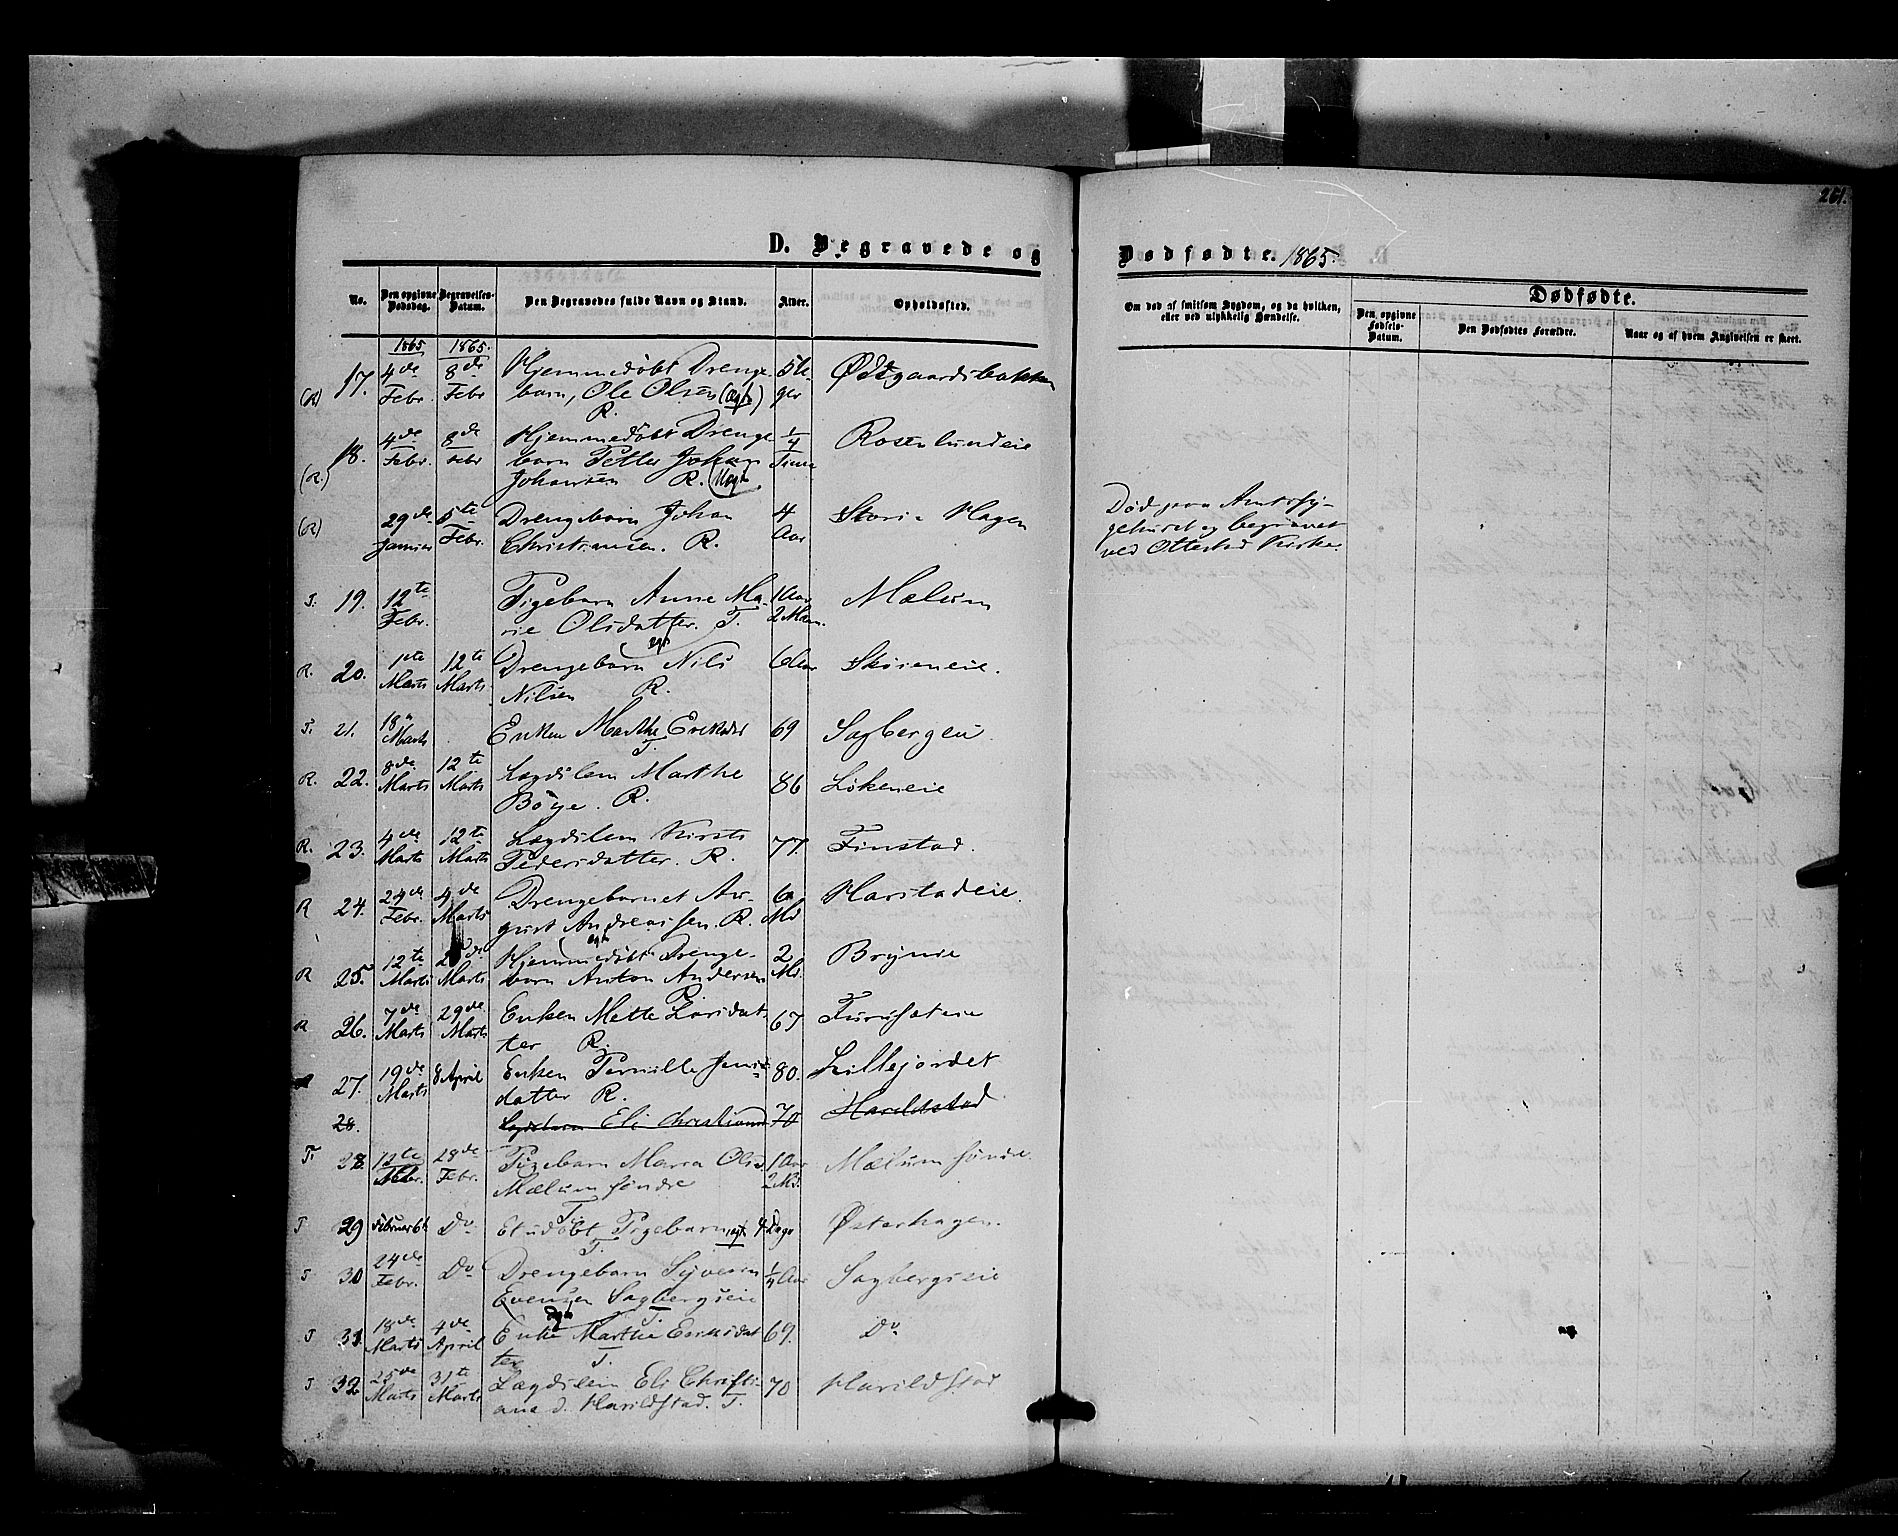 261.
D. Begravede og
Dødfødte. 1865.
No.
Den opgivne Dødsdag.
Begravelses-Datum.
Den Begravedes fulde Navn og Stand.
Alder.
Opholdssted.
Om død af smitsom Sygdom, og da hvilken, eller ved ulykkelig Hændelse.
Dødfødte.
Den opgivne Fødsels-Datum.
Den Dødfødtes Forældre.
Naar og af hvem Angivelsen er skeet.
1865 1865.
(R) 17. 4de Febr. 8de Febr Hjemmedøbt Drenge-
barn, Ole Olsen (Ægte) R. Øddgaardsbakken
(R.) 18. 4de Febr. 8de Febr Hjemmedøbt Drenge
barn Petter Johan
Johansen R. 1/4 Time Rosenlundeie
(R) 29de Januar 5te Febr. Drengebarn Johan
Christiansen. R. 4 Aar Hagen
Død paa Amtssy-
gehuset og begravet
ved Ottestad Kirke.
T. 19. 12te Febr. Pigebarn Anne Ma-
rie Olsdatter. T. 1 Aar 2 Maan. Mælum
R. 20. 1ste Marts 12te Marts Drengebarn Nils
Nilsen R. 6 Aar
T. 21. 18 Marts Enken Marthe Eriksdr T. 69 Sagbergeu
R. 22. 8de Marts 12te Marts Lægdslem Marthe
Böye. R. 86 Lökeneie
R. 23. 4de Marts 12te Marts Lægdslem Kirsti
Pedersdatter. R. 77. Finstad.
R 24. 24de Febr. 4de Marts Drengebarnet Au-
gust Andreassen. R. 6 Md Harstadeie.
R 25. 12te Marts Marts Hjemmedøbt Drenge-
barn Anton Andersen R. 2 Md. Brynie
R 26. 7de Marts 29de Marts Enken Mette Larsdat-
ter R. 67 Furusæteie
R 27. 19de Marts 8 April Enken Pernille Jens-
datter R. 80. Lillejordet
28. Lægdslem Eli Christians 70 Haraldstad
T. 28. 12te Febr. 28de Febr. Pigebarn Maria Ols
Mælum söndre T. 1 Aar 2 Md. Mælum söndre.
T 29 Februar 6te Do Et udøbt Pigebarn ægte T. 4 Dage Østerhagen.
T 30 24de Febr. Do Drengebarn Syvern
Evensen Sagbergseie T. 1/4 Aar Sagbergseie
T 31 18de Marts 4de April Enke Marthe Eriksdat
ter T. 69. Do
T 32 25de Marts 31te Marts Lægdslem Eli Christi-
ane d. Harildstad. T. 70 Harildstad